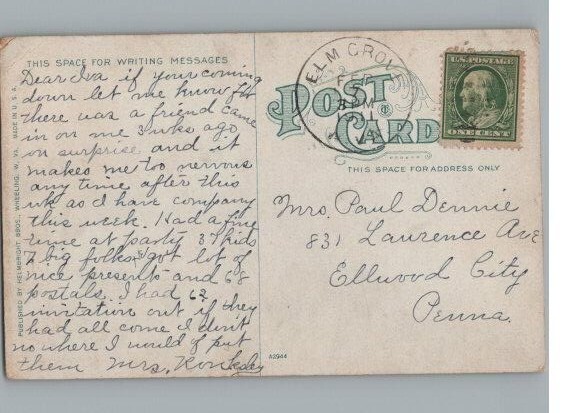 THIS SPACE FOR WRITING MESSAGES
Dear Iva if your coming
down let me know for
there was a friend came
in on me 3 wks ago
on surprise and it
makes me too nervous
any time after this
wk as I have company
this week. Had a fine
time at party 37 kids
7 big folks got lot of
nice presents and 68
postals. I had 62
invitation out if they
had all come I don't
no where I would of put
them Mrs.
PUBLISHED BY HELMBRIGHT BROS., WHEELING, W. VA. MADE IN U.S.A.
ELM GROVE
W. VA.
POST
CARD
U.S. POSTAGE
ONE CENT
THIS SPACE FOR ADDRESS ONLY
Mrs. Paul Dennie
831 Laurence Ave
Ellwood City
Penna.
A2944